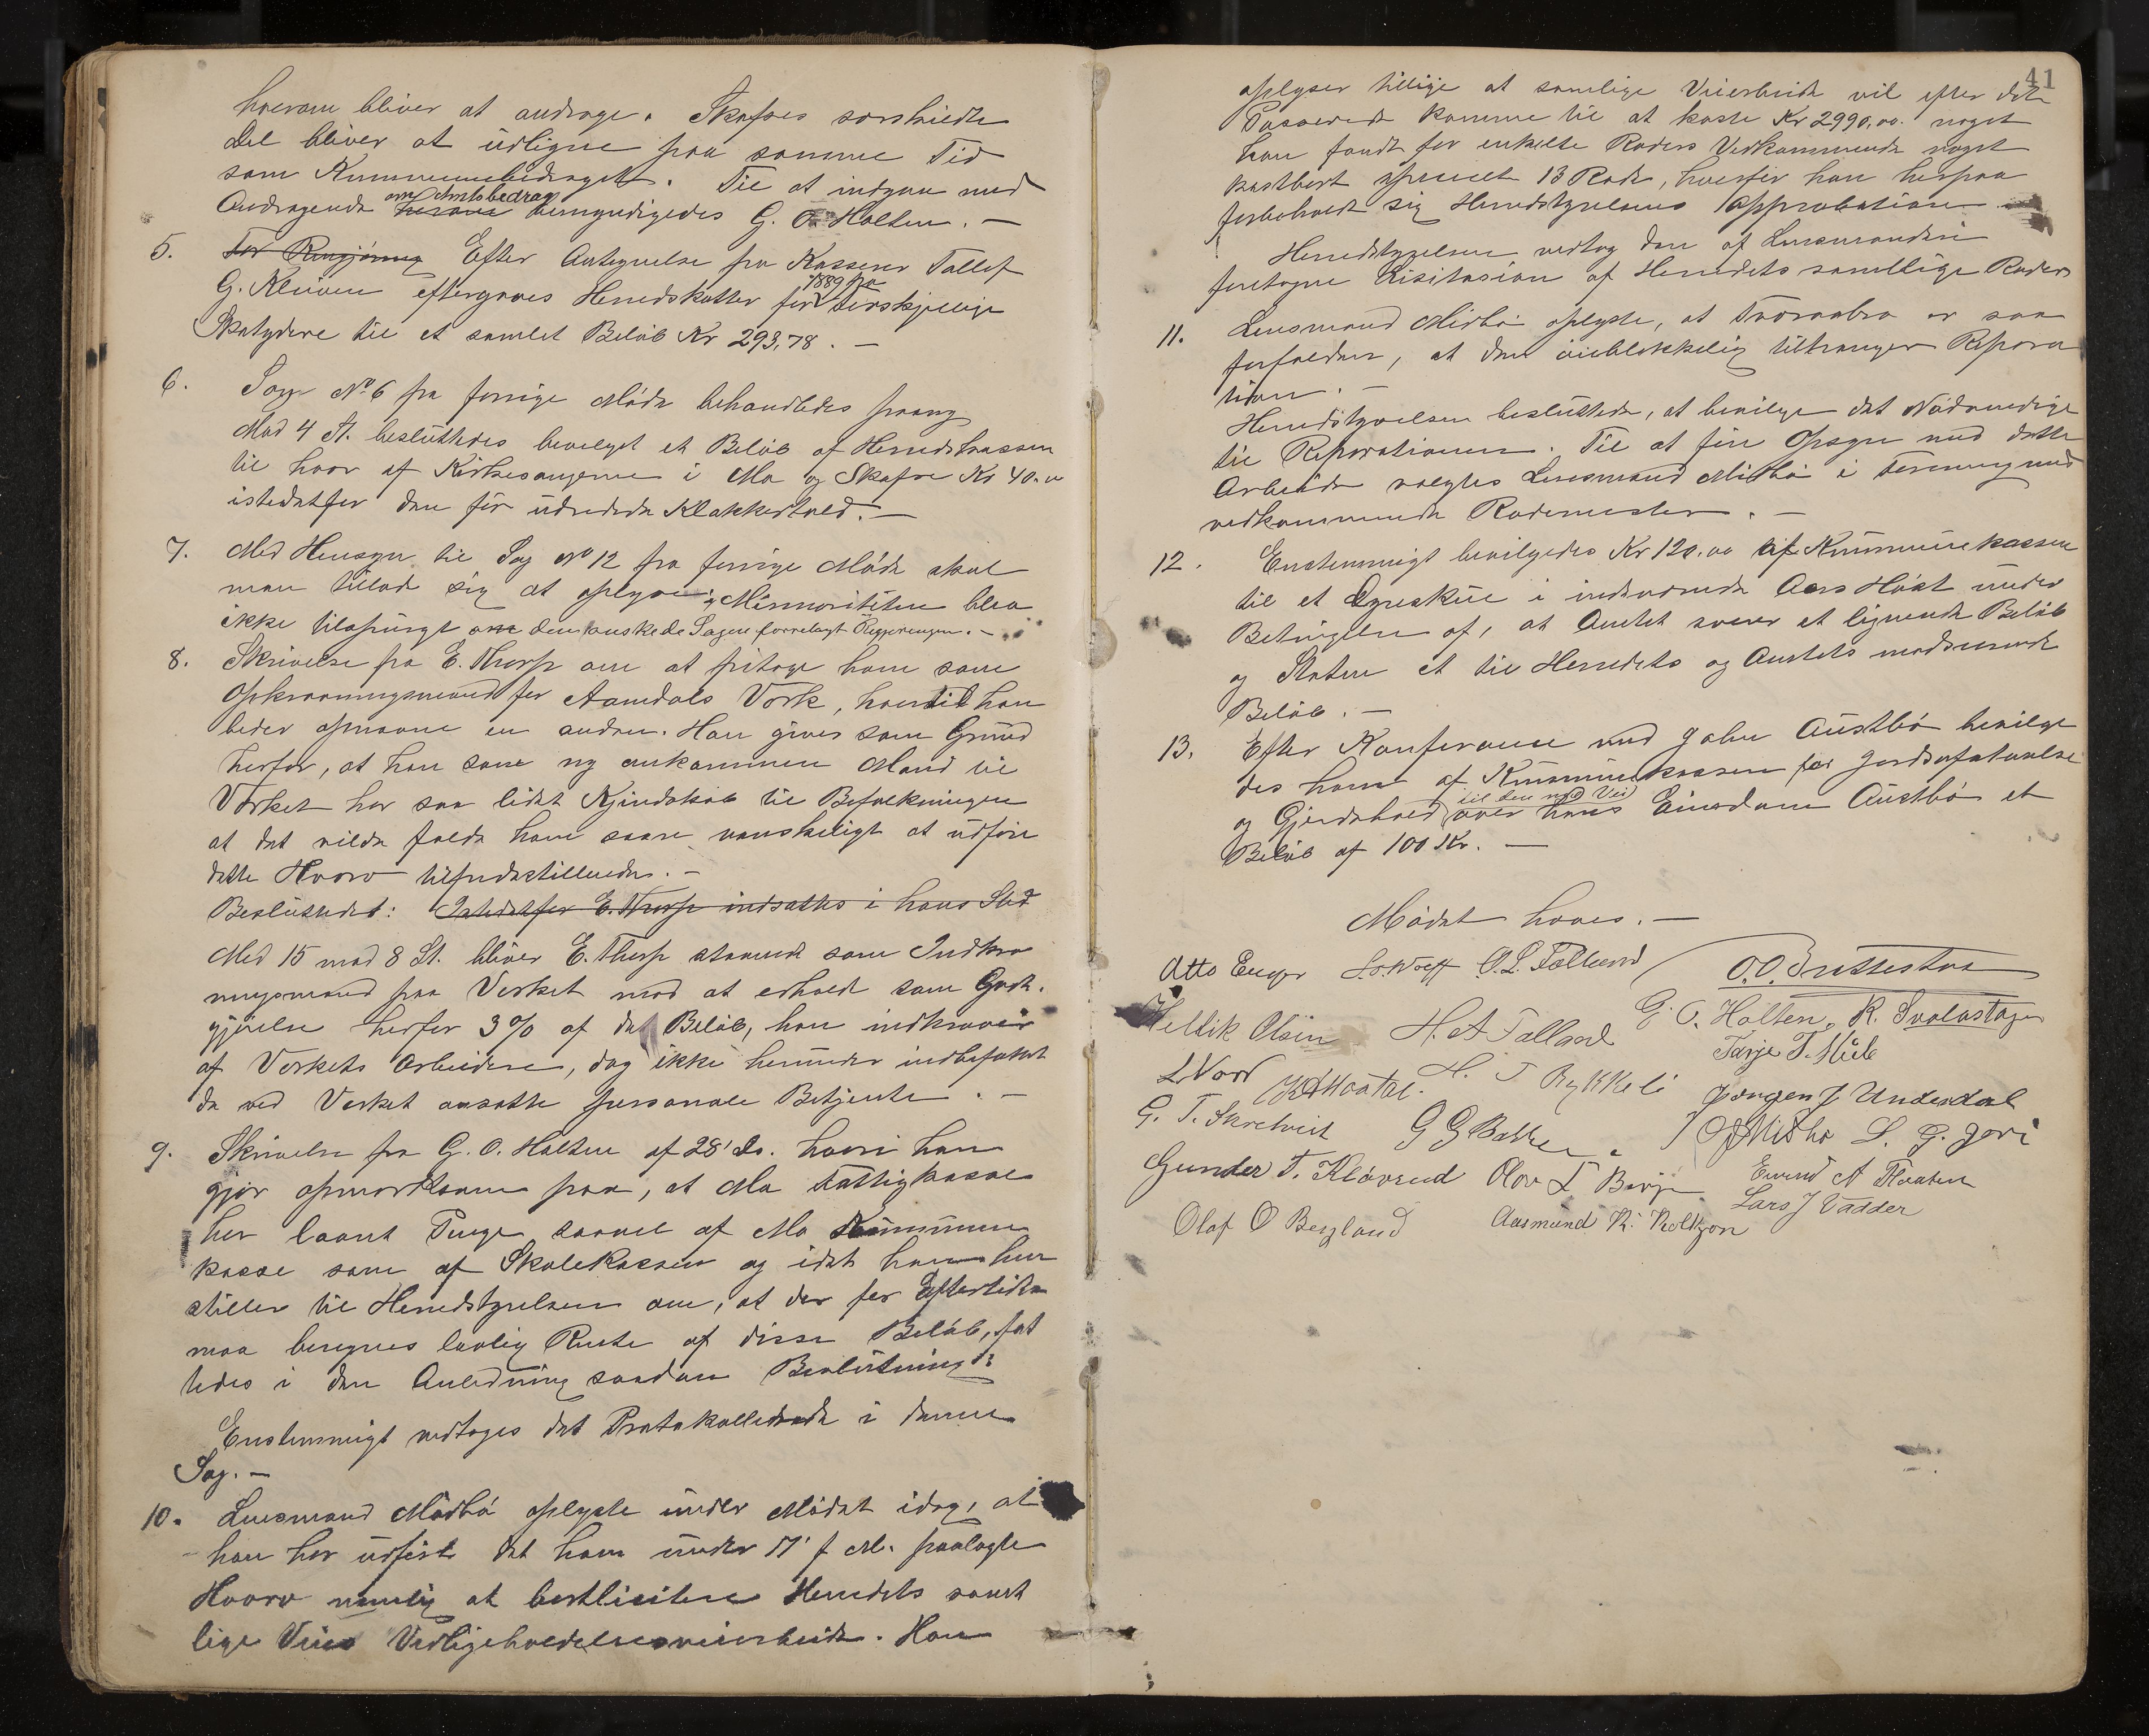 hvorom bliver at andrage. Skafses særskiedte
Del bliver at udligne paa samme Tid
som Kommunebidraget. Til at indgaa med
Andragende om Amtsbedrag herom bemyndigedes G. O. Holten. —
5. For Rengjøring Efter Antegnelse fra Kasserer Tallef
G. Kleiven eftergaves Herredskatter for 1889 fra forskjellige
Skatydere til et samlet Beløb Kr 293,78. —
6. Sag No 6 fra forrige Møde behandledes paany
Mod 4 St. besluttedes bevilget et Beløb af Herredskassen
til hver af Kirkesangerne i Mo og Skafse Kr 40.00
istedetfor den før udredede Klokkertold. —
7. Med Hensyn til Sag No 12 fra forrige Møde skal
man tillade sig at oplyse, at Minnoriteten blev
ikke tilspurgt om den ønskede Sagen forrelagt Regjeringen. —
8. Skrivelse fra E. Thorp om at fritage ham som
Opkrævningsmand for Aamdals Værk, hvortil han
beder opnævne en anden. Han giver som Grund
herfor, at han som ny ankommen Mand til
Værket har saa lidet Kjendskab til Befolkningen
at det vilde falde ham saare vanskeligt at udføre
dette Hverv tilfredsstillende. —
Besluttedes: Istedetfor E. Thorp indsattes i hans Sted
Med 15 mod 8 St. bliver E. Thorp staaende som Indkræv
ningsmand paa Værket mod at erholde som Godt-
gjørelse herfor 3 % af det Beløb, han indkræver
af Værkets Arbeidere, dog ikke herunder indbefattet
de ved Værket ansatte personale Betjente. —
9. Skrivelse fra G. O. Holten af 28' ds. hvori han
gjør opmærksom paa, at Mo Fattigkasse
har laant Penge saavel af Mo Kommune
kasse som af Skolekassen og idet han hen
stiller til Herredstyrelsen om, at der for Eftertiden
maa beregnes lovlig Rente af disse Beløb, fat
tedes i den Anledning saadan Beslutning:
Enstemmigt vedtoges det Protokollerede i denne
Sag. —
10. Lensmand Midbø oplyste under Mødet idag, at
han har udført det ham under 17' f M. paalagte
Hverv nemlig at bortlicitere Herredets samt
lige Veies Vedligeholdelsesveiarbeide. Han
41
oplyser tillige at samlige Veiarbeide vil efter det
Passerede komme til at koste Kr 2990,00. noget
han fandt for enkelte Roders Vedkommende noget
kostbart specielt 13 Rode, hvorfor han herpaa
forbeholdt sig Herredstyrelsens Approbation. —
Herredstyrelsen vedtog den af Lensmanden
foretagne Lisitasion af Herredets samtlige Roder
11. Lensmand Midbø oplyste, at er saa
forfalden, at den øieblikkelig tiltrænger Repara
tion. —
Herredstyrelsen besluttede, at bevilge det Nødvendige
til Reparationen. Til at føre Opsyn med dette
Arbeide valgtes Lensmand Midbø i Forening med
vedkommende Rodemester. —
12. Enstemmigt bevilgedes Kr 120.00 af Kommunekassen
til et Dyreskue i indeværende Aars Høst under
Betingelse af, at Amtet yder et lignende Beløb
og Staten et til Herredets og Amtets modsvarende
Beløb. —
13. Efter Konferance med John Austbø bevilge
des ham af Kommunekassen for Jordafstaaelse
og Gjerdehold til den nye Vei over hans Eiendom Austbø et
Beløb af 100 Kr. —
Mødet hæves. —
Otto Enger O. L. Følland O. O. Bruttestaa
Hellik Olsen H. A Falland G. O. Holten R. Svalastoga
Tarje T. Miele
L Vaa H. T Rykkeli Jørgen J Underdal
G. T. Skretveit G G Bakke O J Midbø L. G. Jore
Gunder T. Kløvrud Olav T. Berge Eivind A
Lars J Vadder
Olaf O Bergland Aasmund K. Holtzon